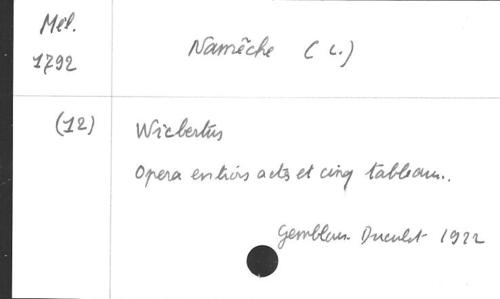 Mél.
1792
Namêche (L.)
(12)
Wicbertus
Opera en trois acts et cinq tableaux.
Gembloux Duculot 1922